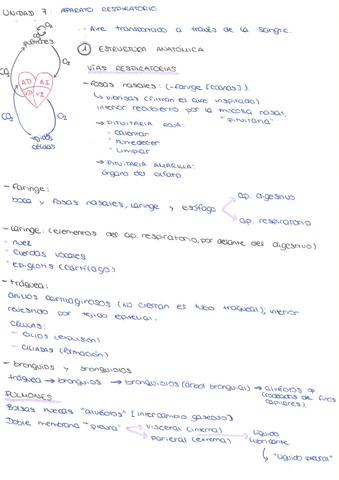 UNIDAD 7: APARATO RESPIRATORIO
O2
CO2
pulmones
· Aire transportado a través de la sangre.
① ESTRUCTURA ANATÓMICA
VÍAS RESPIRATORIAS
CO2
O2
AD AI
VD VI
CO2
O2
tejidos
células
- fosas nasales: (-faringe [coanas]).
↳ vibrisas (filtran el aire inspirado)
interior recubierto por la mucosa nasal.
"pituitaria"
→ PITUITARIA ROJA:
· calentar
· humedecer
· limpiar
→ PITUITARIA AMARILLA:
órgano del olfato
- faringe:
boca y fosas nasales, laringe y esófago
ap. digestivo
ap. respiratorio
- laringe: (elementos del ap. respiratorio, por delante del digestivo)
· nuez
· cuerdas vocales
· epiglotis (cartílago)
- tráquea:
anillos cartilaginosos (no cierran el tubo traqueal); interior
revestido por tejido epitelial.
CÉLULAS:
- CILIOS (expulsión)
- CILIADAS (formación)
- bronquios y bronquiolos
tráquea → bronquios → bronquiolos (árbol bronquial) → alvéolos
(rodeados de finos
capilares).
PULMONES
Bolsas huecas "alvéolos" [intercambio gaseoso]
Doble membrana "pleura"
visceral (interna)
parietal (externa)
líquido
lubricante
↳ "líquido pleural"